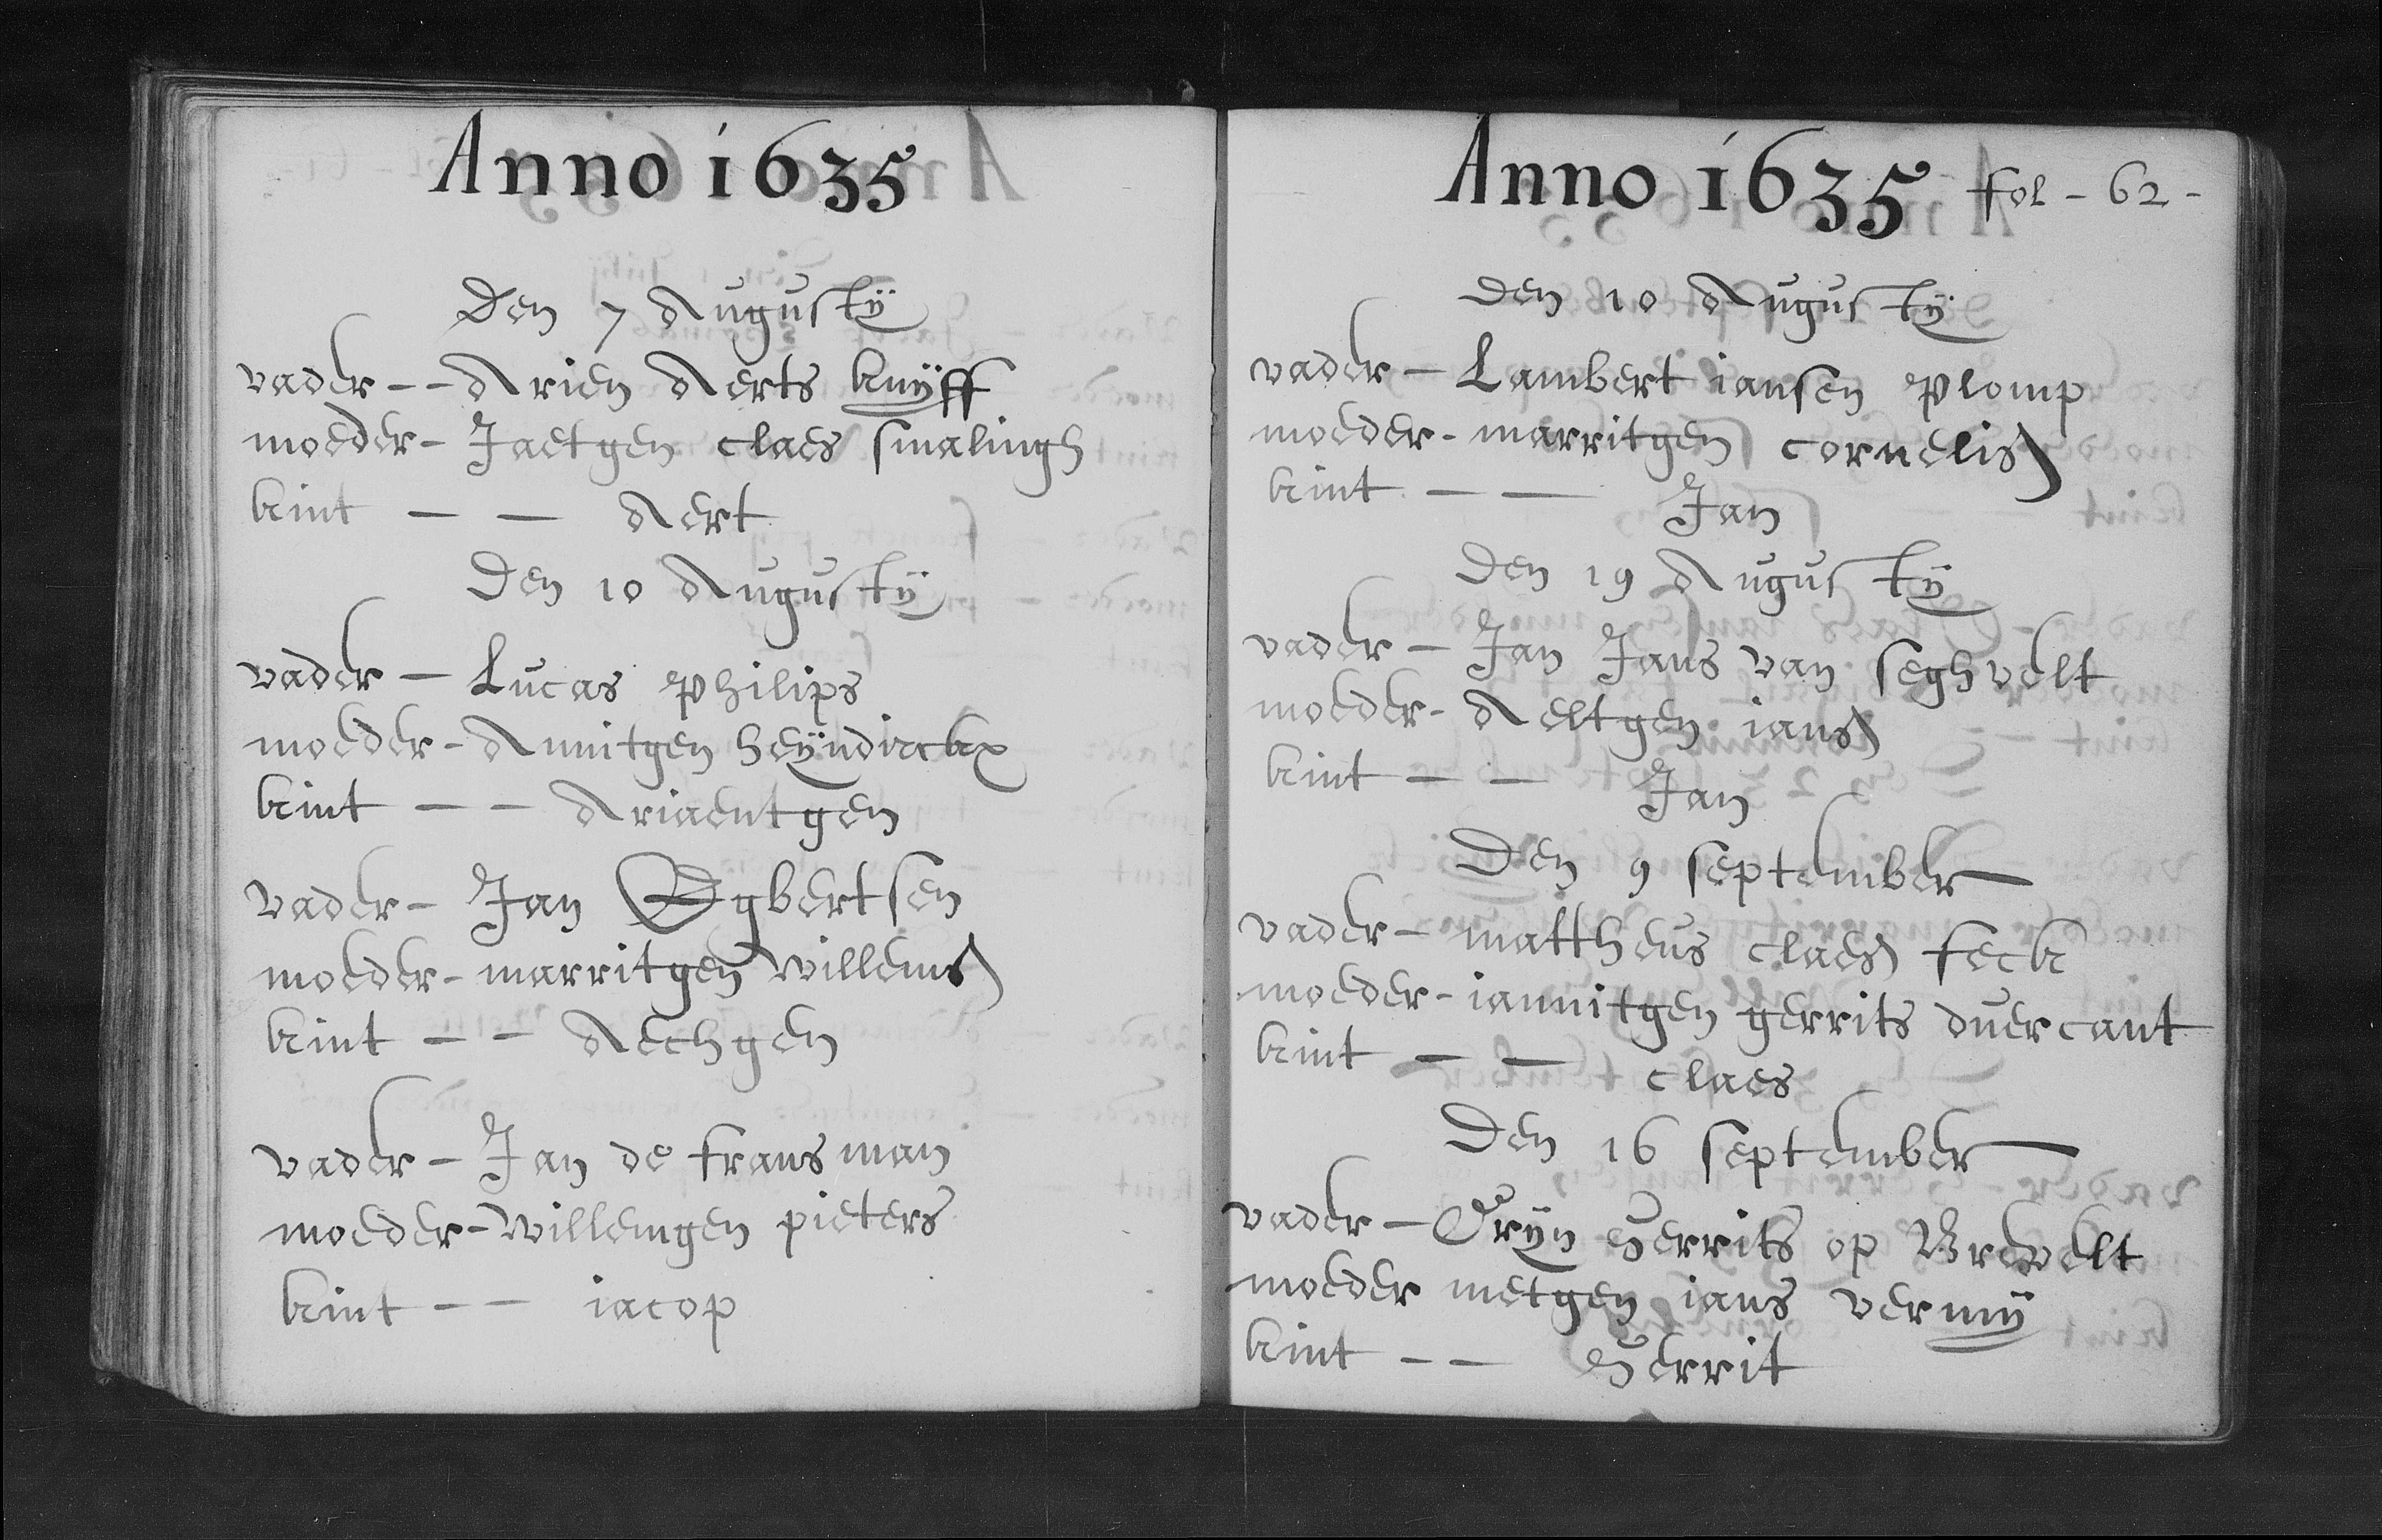 Anno 1635
Den 7 Augustÿ
vader - - Arien Aerts knÿff
moeder - Jaetgen claes smalingh
kint - - Aert
Den 10 Augustÿ
vader - Lucas philips
moeder - Annitgen heÿndirckx
kint - - Ariaentgen
vader - Jan Egbertsen
moeder - marritgen willems
kint - - Aechgen
vader - Jan de fransman
moeder - willemgen pieters
kint - - iacop
Anno 1635 fol - 62 -
Den 10 Augustÿ
vader - Lambert iansen plomp
moeder - marritgen cornelis
kint - - Jan
Den 19 Augustÿ
vader - Jan Jans van seghvelt
moeder - Aeltgen ians
kint - - Jan
Den 9 september
vader - mattheus claes feck
moeder - iannitgen gerrits duercant
kint - - claes
Den 16 september
vader - Crÿn Gerrits op
moeder metgen ians vermÿ
kint - - Gerrit